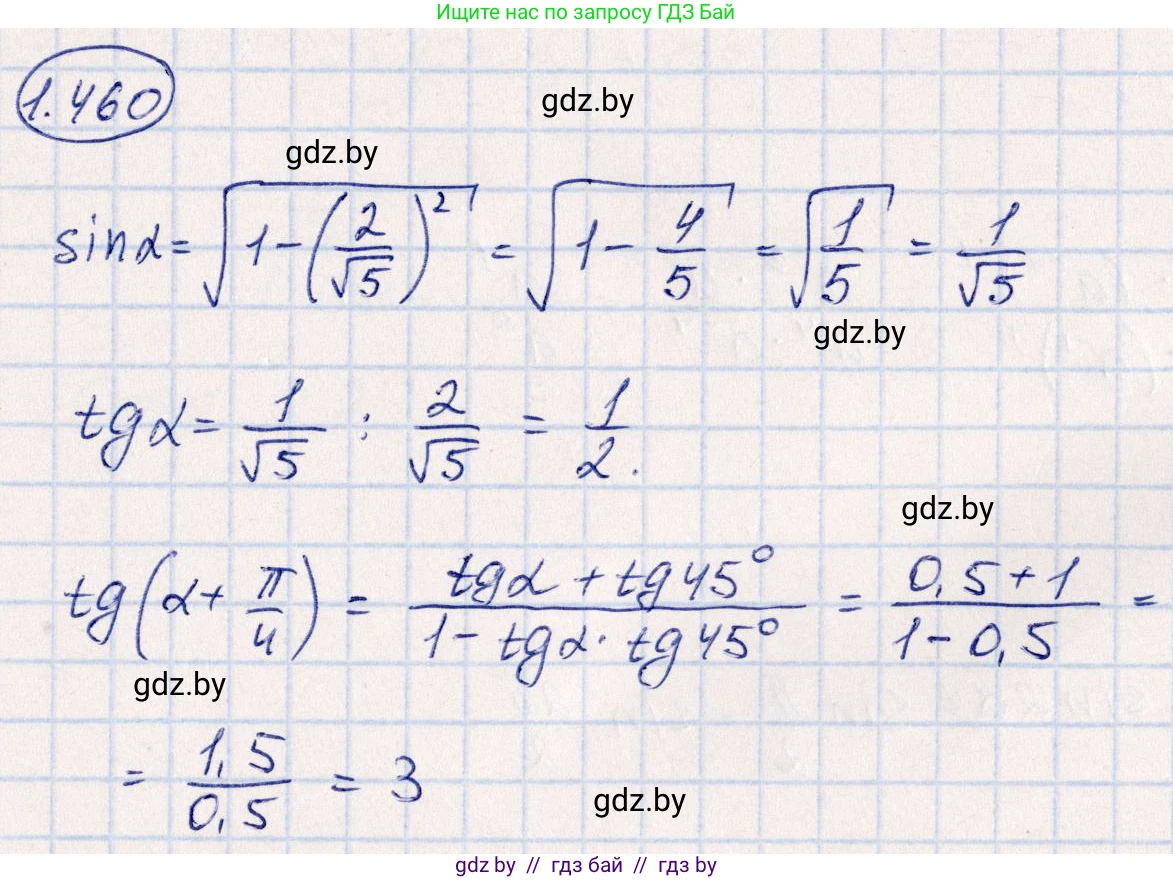 Ищите нас по запросу ГДЗ Бай
1.460
gdz.by
gdz.by
sinα = √(1 − (2/√5)²) = √(1 − 4/5) = √(1/5) = 1/√5
gdz.by
tg α = 1/√5 : 2/√5 = 1/2.
gdz.by
tg(α + π/4) = (tgα + tg 45°)/(1 − tgα · tg 45°) = (0,5 + 1)/(1 − 0,5) =
gdz.by
= 1,5/0,5 = 3
gdz.by
gdz.by // гдз бай // gdz.by